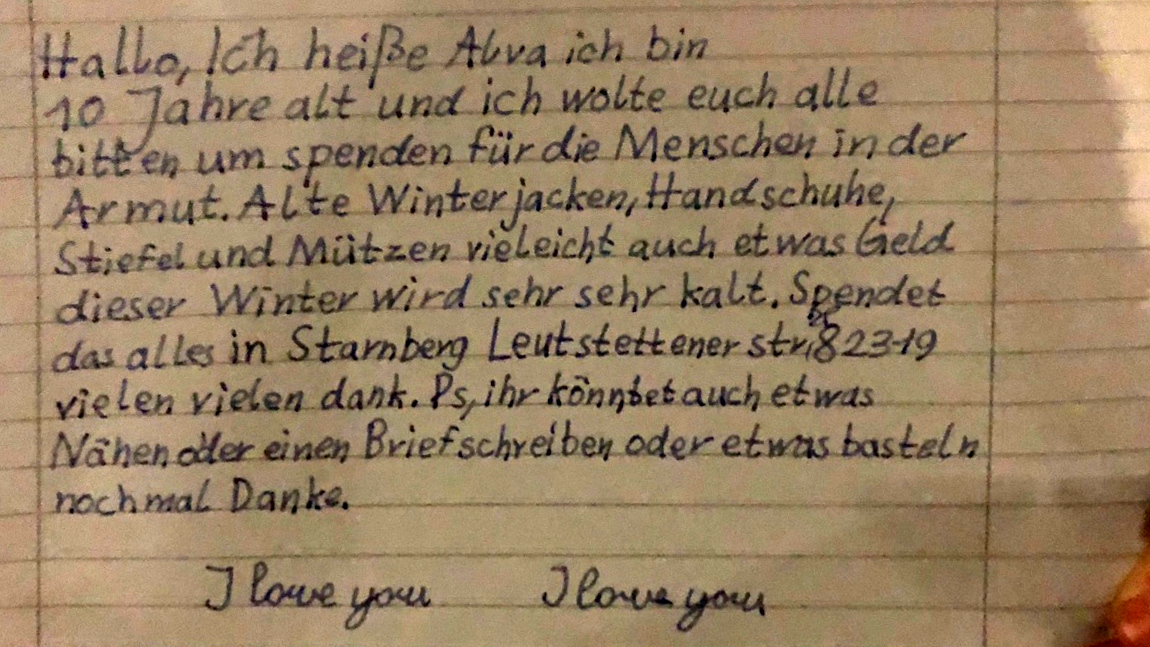 Hallo, Ich heiße Alva ich bin
10 Jahre alt und ich wolte euch alle
bitten um spenden für die Menschen in der
Armut. Alte Winterjacken, Handschuhe,
Stiefel und Mützen vieleicht auch etwas Geld
dieser Winter wird sehr sehr kalt. Spendet
das alles in Starnberg Leutstettener str, 823-19
vielen vielen dank. Ps, ihr könntet auch etwas
Nähen oder einen Brief schreiben oder etwas basteln
nochmal Danke.
I love you I love you